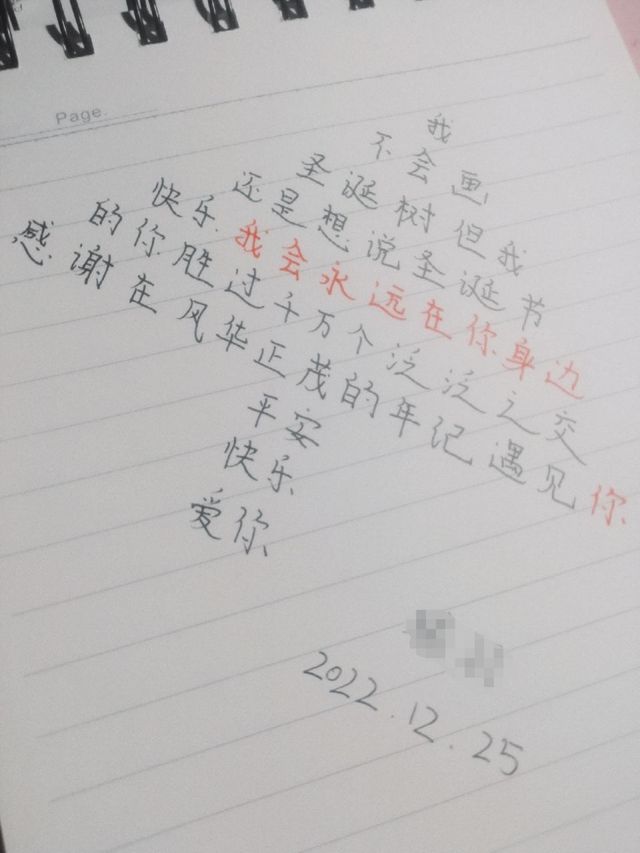 Page.
我
不会画
圣诞树但我
还是想说圣诞节
快乐我会永远在你身边
的你胜过千万个泛泛之交
感谢在风华正茂的年记遇见你
平安
快乐
爱你
2022.12.25